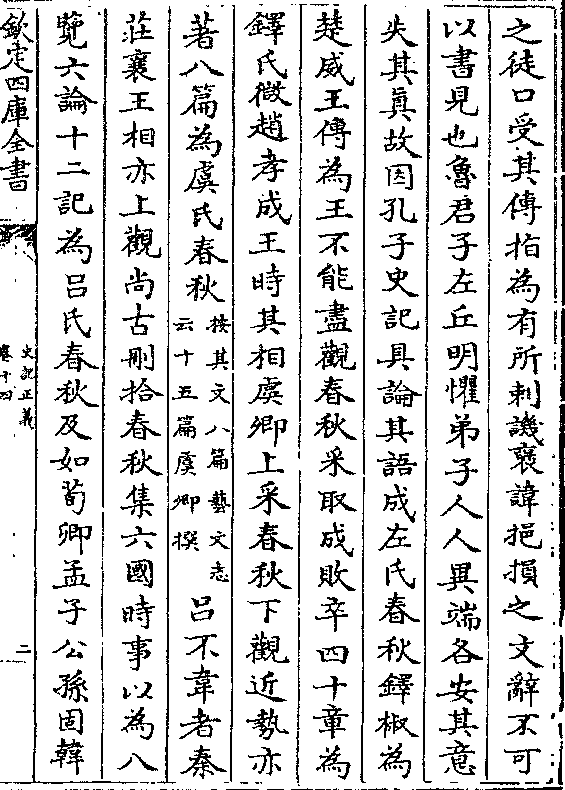 之徒口受其傳指為有所刺譏襃諱挹損之文辭不可
以書見也魯君子左丘明懼弟子人人異端各安其意
失其真故因孔子史記具論其語成左氏春秋鐸椒為
楚威王傳為王不能盡觀春秋采取成敗卒四十章為
鐸氏微趙孝成王時其相虞卿上采春秋下觀近勢亦
著八篇為虞氏春秋按其文八篇藝文志云十五篇虞卿撰呂不韋者秦
莊襄王相亦上觀尚古刪拾春秋集六國時事以為八
覽六論十二記為呂氏春秋及如荀卿孟子公孫固韓
欽定四庫全書
史記正義
卷十四
二